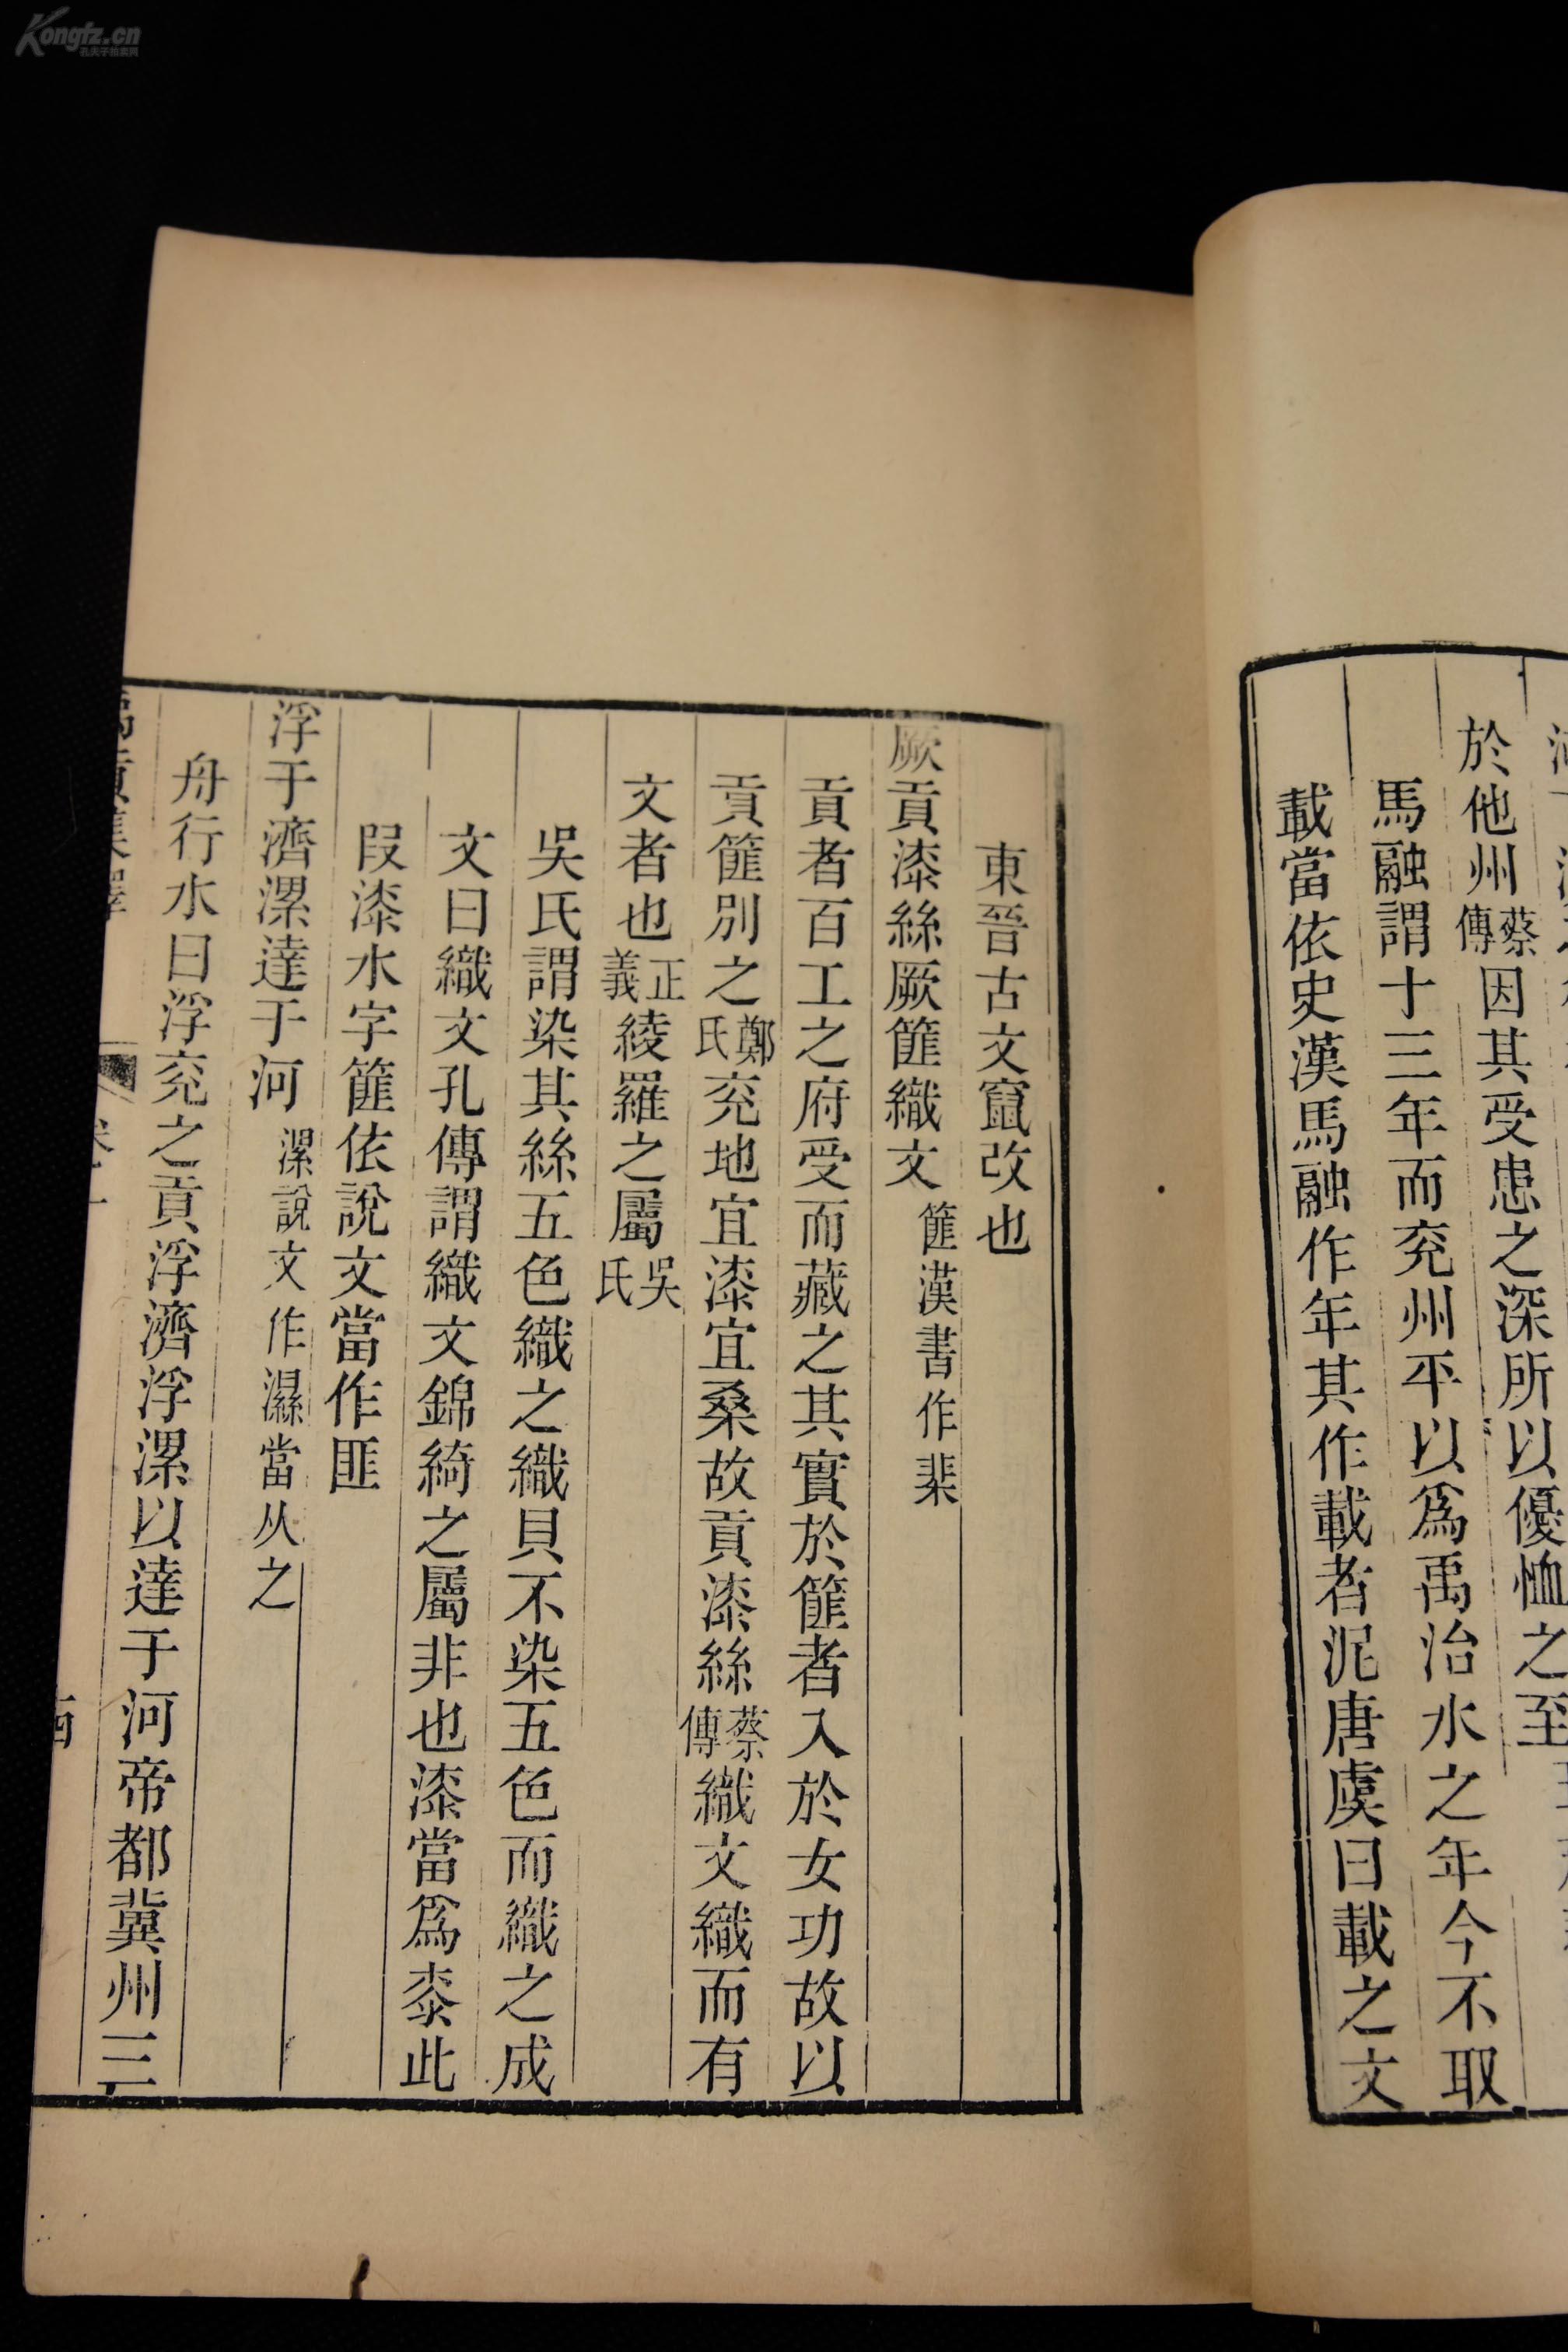 Kongfz.cn
孔夫子拍卖网
於他州蔡傳因其受患之深所以優恤之至
馬融謂十三年而兖州平以爲禹治水之年今不取
載當依史漢馬融作年其作載者泥唐虞曰載之文
東晉古文竄改也
厥貢漆絲厥篚織文篚漢書作棐
貢者百工之府受而藏之其實於篚者入於女功故以
貢篚別之鄭氏兖地宜漆宜桑故貢漆絲蔡傳織文織而有
文者也正義綾羅之屬吳氏
吳氏謂染其絲五色織之織貝不染五色而織之成
文曰織文孔傳謂織文錦綺之屬非也漆當爲桼此
叚漆水字篚依說文當作匪
浮于濟漯達于河漯說文作濕當从之
舟行水曰浮兖之貢浮濟浮漯以達于河帝都冀州三